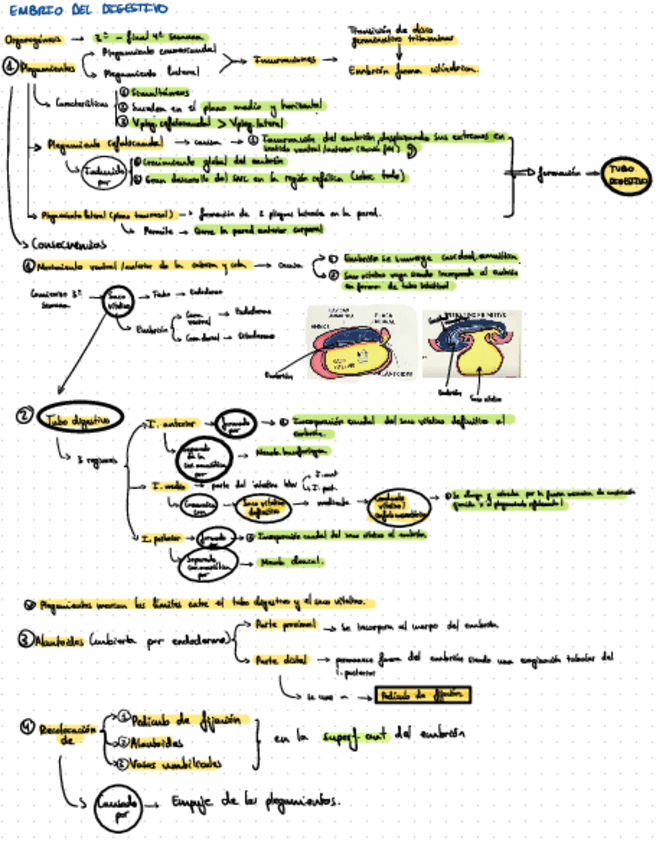 EMBRIO DEL DIGESTIVO
Organogénesis → 3ª - final 4ª semana
Transición de disco
germinativo trilaminar
① Plegamientos
Plegamiento craneocaudal
Plegamiento lateral
Incurvaciones →
Embrión forma cilíndrica.
Características
① Simultáneos
② Suceden en el plano medio y horizontal
③ Vpleg cefalocaudal > Vpleg lateral
Plegamiento cefalocaudal → causa → ① Incurvación del embrión, desplazando sus extremos en
sentido ventral/anterior
Inducido
por
① Crecimiento global del embrión
② Gran desarrollo del SNC en la región cefálica (sobre todo)
⇒ formación →
TUBO
DIGESTIVO
Plegamiento lateral (plano transversal) → formación de 2 pliegues laterales en la pared.
Permite → Cierre la pared anterior corporal
Consecuencias
① Movimiento ventral/anterior de la cabeza y cola → causa
① Embrión se sumerge cavidad amniótica
② Saco vitelino vaya siendo incorporado al embrión
en forma de tubo intestinal
Comienzo 3ª
semana
Saco
vitelino
→ Techo → Endodermo
Embrión
Cara
ventral
→ Endodermo
Cara dorsal → Ectodermo
Embrión
Embrión
Saco vitelino
② Tubo digestivo
3 regiones
I. anterior →
formado
por
→ ① Incorporación caudal del saco vitelino definitivo al
embrión.
Separado
de la
cav. amniótica
por
→ Memb. bucofaríngea
I. medio → parte del intestino entre
I. ant
I. post.
Comunica
con
Saco vitelino
definitivo
→ mediante →
Conducto
vitelino/
onfalomesentérico
① Se alarga y estrecha por la fuerza
I. posterior →
formado
por
→ ① Incorporación caudal del saco vitelino al embrión
Separado
cav. amniótica
por
→ Memb. cloacal.
Plegamientos marcan los límites entre el tubo digestivo y el saco vitelino.
③ Alantoides (cubierta por endodermo)
Parte proximal → se incorpora al cuerpo del embrión
Parte distal → permanece fuera del embrión siendo una evaginación tubular del
I. posterior
se une a →
Pedículo de fijación
④ Recolocación
de
① Pedículo de fijación
② Alantoides
③ Vasos umbilicales
en la superf. ant del embrión
Causado
por
→ Empuje de los plegamientos.